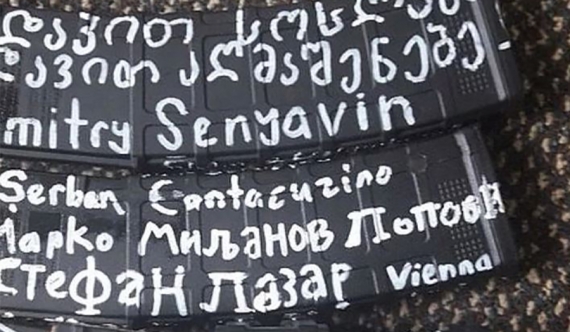 დავით
დავით აღმაშენებე-
mitry Senyavin
Serban Cantacuzino
Марко Миљанов Попови
Стефан Лазар Vienna